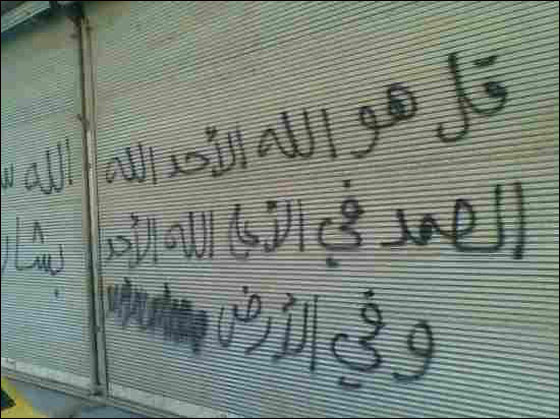 قل هو الله الأحد الله
الصمد في الله الأحد
وفي الأرض
الله
بشار